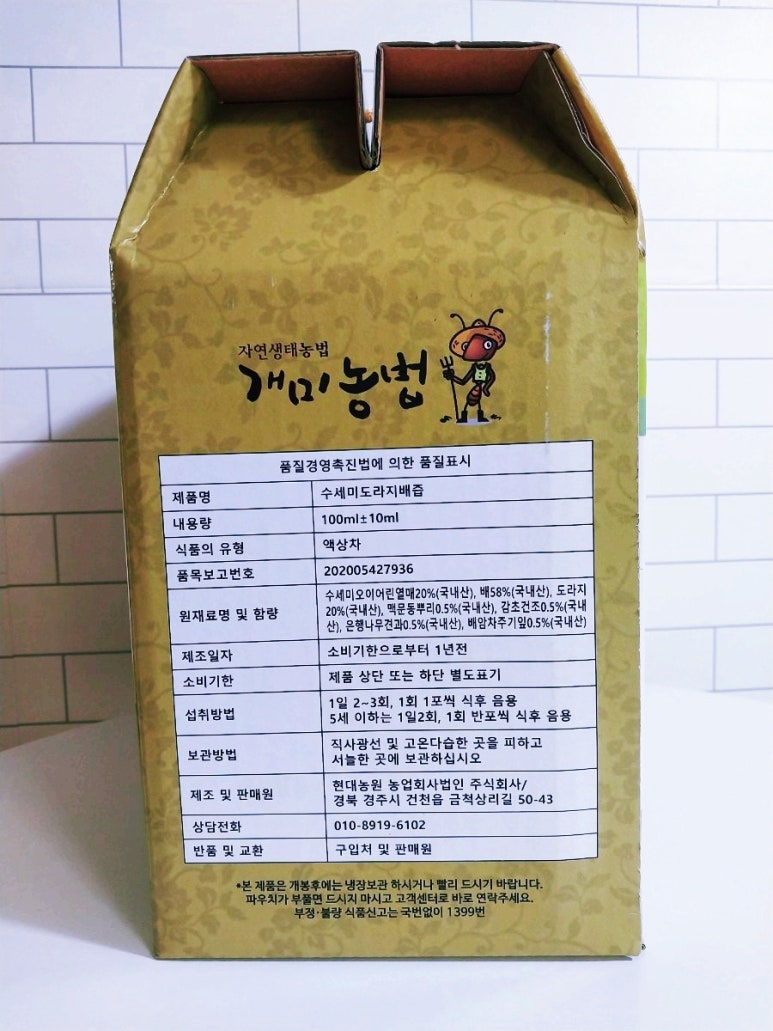 자연생태농법
개미농법
품질경영촉진법에 의한 품질표시
제품명 수세미도라지배즙
내용량 100ml±10ml
식품의 유형 액상차
품목보고번호 202005427936
원재료명 및 함량 수세미오이어린열매20%(국내산), 배58%(국내산), 도라지
20%(국내산), 맥문동뿌리0.5%(국내산), 감초건조0.5%(국내
산), 은행나무견과0.5%(국내산), 배암차주기잎0.5%(국내산)
제조일자 소비기한으로부터 1년전
소비기한 제품 상단 또는 하단 별도표기
섭취방법 1일 2~3회, 1회 1포씩 식후 음용
5세 이하는 1일2회, 1회 반포씩 식후 음용
보관방법 직사광선 및 고온다습한 곳을 피하고
서늘한 곳에 보관하십시오
제조 및 판매원 현대농원 농업회사법인 주식회사/
경북 경주시 건천읍 금척상리길 50-43
상담전화 010-8919-6102
반품 및 교환 구입처 및 판매원
*본 제품은 개봉후에는 냉장보관 하시거나 빨리 드시기 바랍니다.
파우치가 부풀면 드시지 마시고 고객센터로 바로 연락주세요.
부정·불량 식품신고는 국번없이 1399번